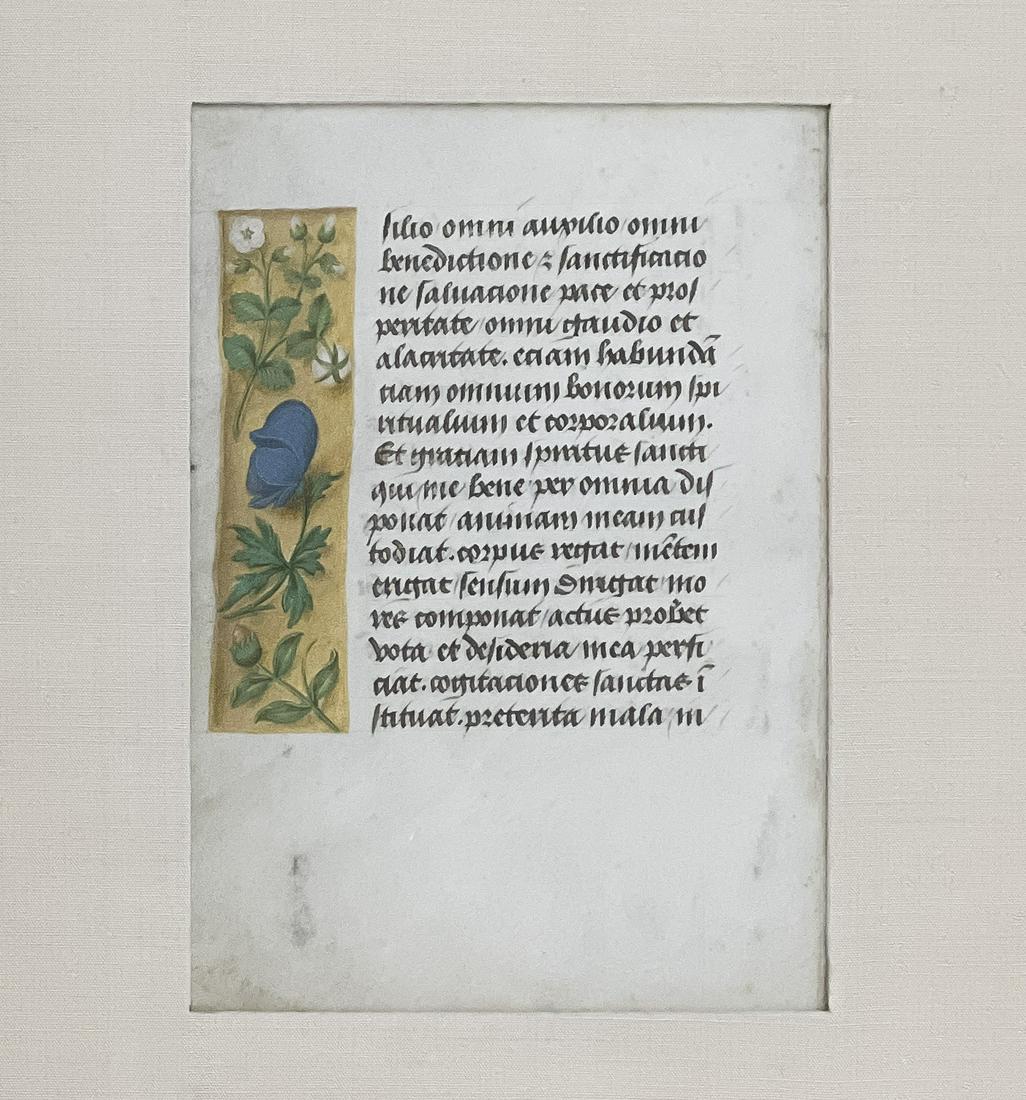 silio omni auxilio omni
benedictione ⁊ sanctificacio
ne saluacione pace et pros
peritate omni gaudio et
alacritate. eciam habundā
ciam omnium bonorum spi
ritualium et corporalium.
Et graciam spiritus sancti
qui me bene per omnia dis
ponat animam meam cus
todiat. corpus regat mētem
erigat sensum dirigat mo
res componat actus probet
vota et desideria mea perfi
ciat. cogitaciones sanctas ī
stituat. preterita mala in